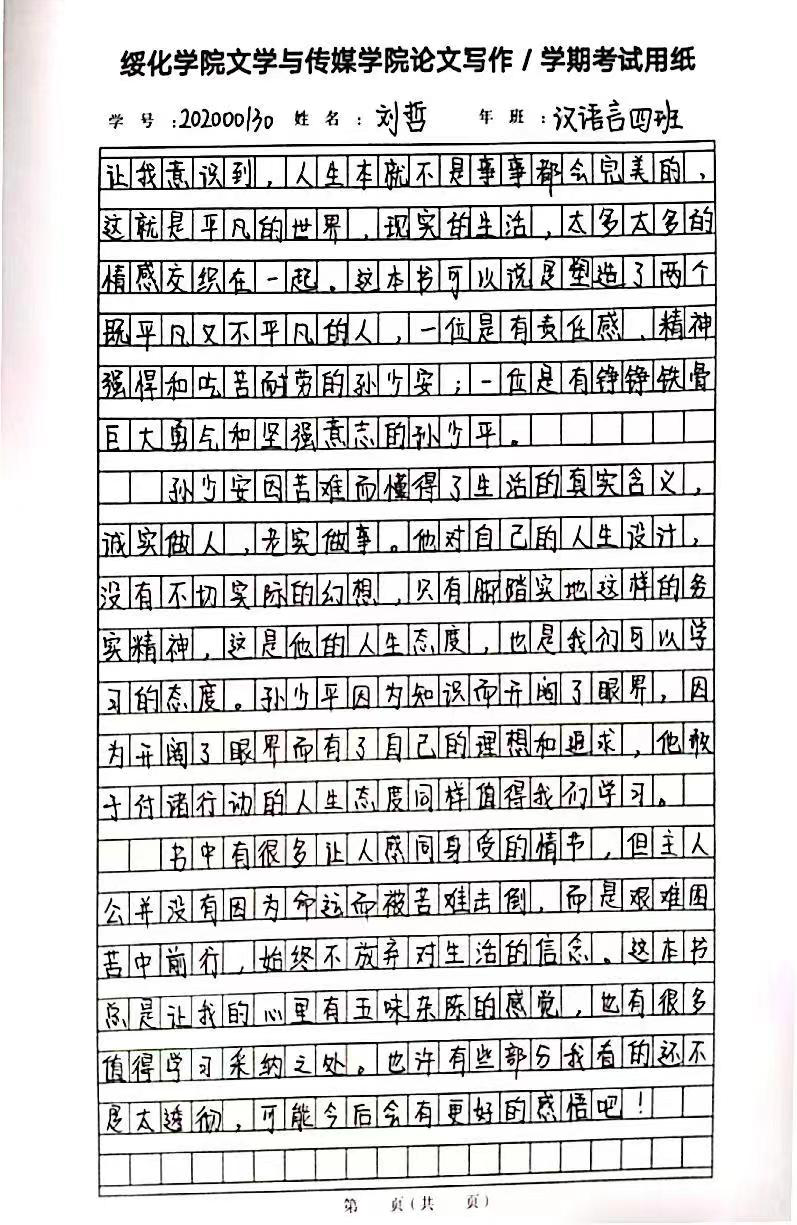 绥化学院文学与传媒学院论文写作 / 学期考试用纸
学 号 :202000130 姓 名 : 刘哲 年 班 : 汉语言四班
让我意识到，人生本就不是事事都会完美的，
这就是平凡的世界，现实的生活，太多太多的
情感交织在一起。这本书可以说是塑造了两个
既平凡又不平凡的人，一位是有责任感、精神
强悍和吃苦耐劳的孙少安；一位是有铮铮铁骨
巨大勇气和坚强意志的孙少平。
孙少安因苦难而懂得了生活的真实含义，
诚实做人，老实做事。他对自己的人生设计，
没有不切实际的幻想，只有脚踏实地这样的务
实精神，这是他的人生态度，也是我们可以学
习的态度。孙少平因为知识而开阔了眼界，因
为开阔了眼界而有了自己的理想和追求，他敢
于付诸行动的人生态度同样值得我们学习。
书中有很多让人感同身受的情节，但主人
公并没有因为命运而被苦难击倒，而是艰难困
苦中前行，始终不放弃对生活的信念。这本书
总是让我的心里有五味杂陈的感觉，也有很多
值得学习采纳之处。也许有些部分我看的还不
是太透彻，可能今后会有更好的感悟吧！
第 页（共 页）